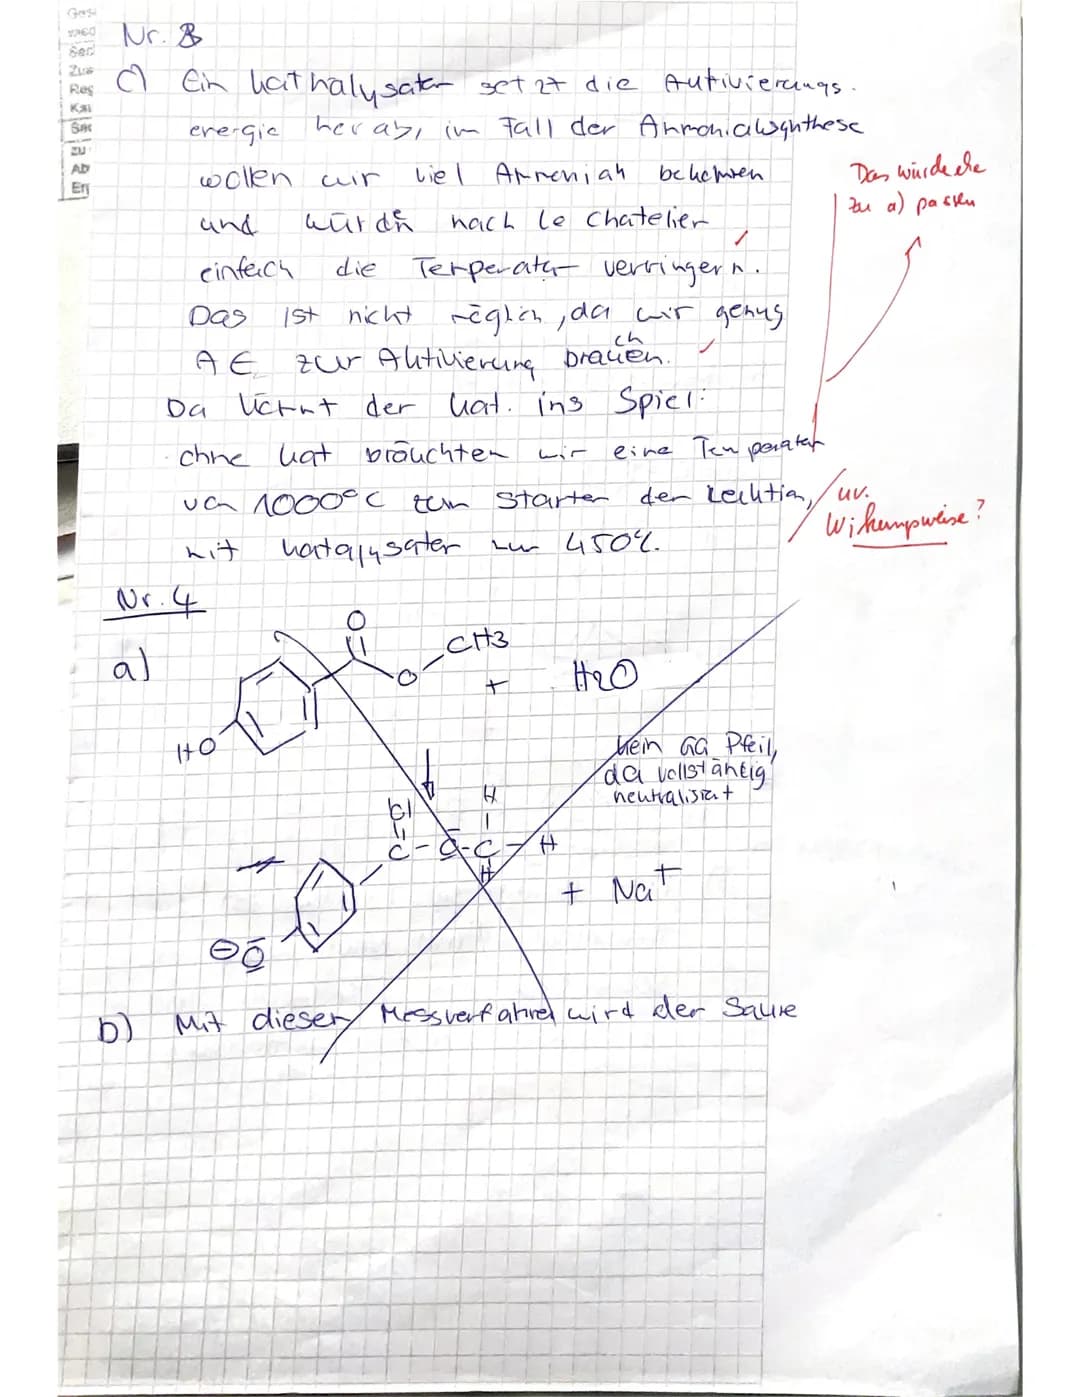 Nr. 3
c) Ein Kathalysator setzt die Aktivierungs-
energie herab, im Fall der Ammoniaksynthese
wollen wir viel Ammoniak bekommen
und würdn nach le Chatelier
einfach die Temperatur verringern.
Das ist nicht möglich, da wir genug
AE zur Aktivierung brauchen.
Da kommt der Kat. ins Spiel:
ohne Kat bräuchten wir eine Temperatur
von 1000°C zum Starten der Reaktion,
mit Katalysator nur 450°C.
Das würde eher
zu a) passen
uv.
Wirkungsweise?
Nr. 4
a)
O
CH3
O
+ H2O
HO
kein GG Pfeil,
da vollständig
neutralisiert
H
C-O-C-H
H
+ Na+
⊖O
b) Mit diesem Messverfahren wird der Säure